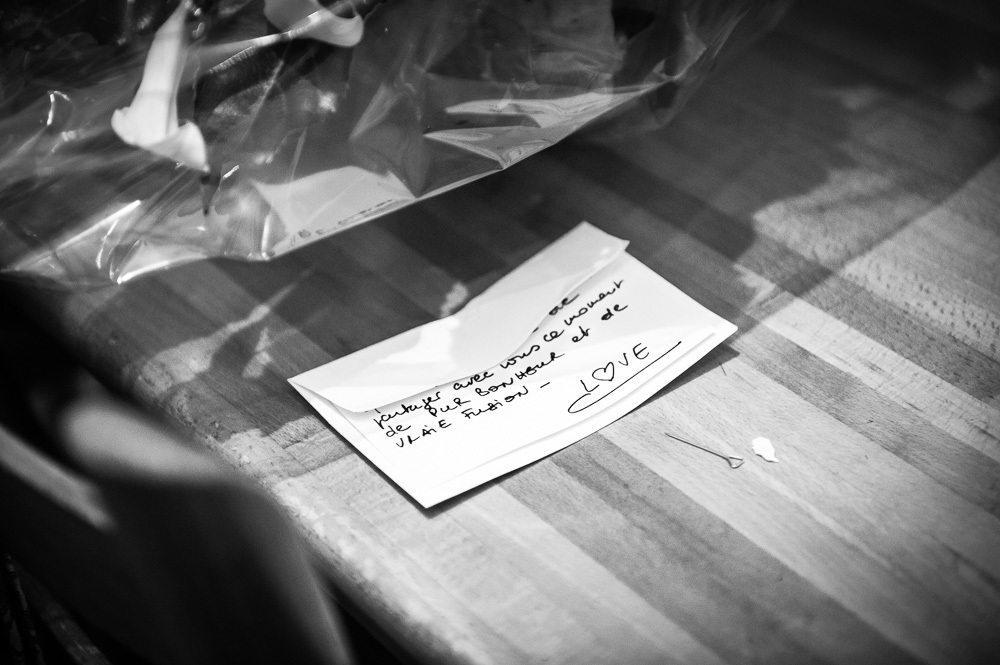 de
partager avec vous ce moment
de PUR BONHEUR et de
VRAIE FUSION -
L♡VE